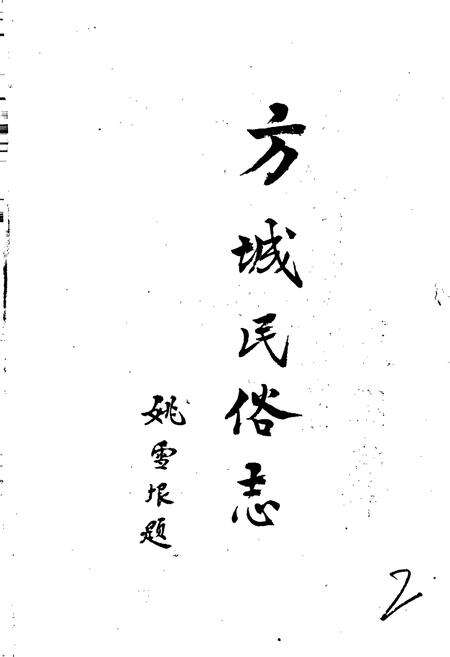 方城民俗志
姚雪垠题
2